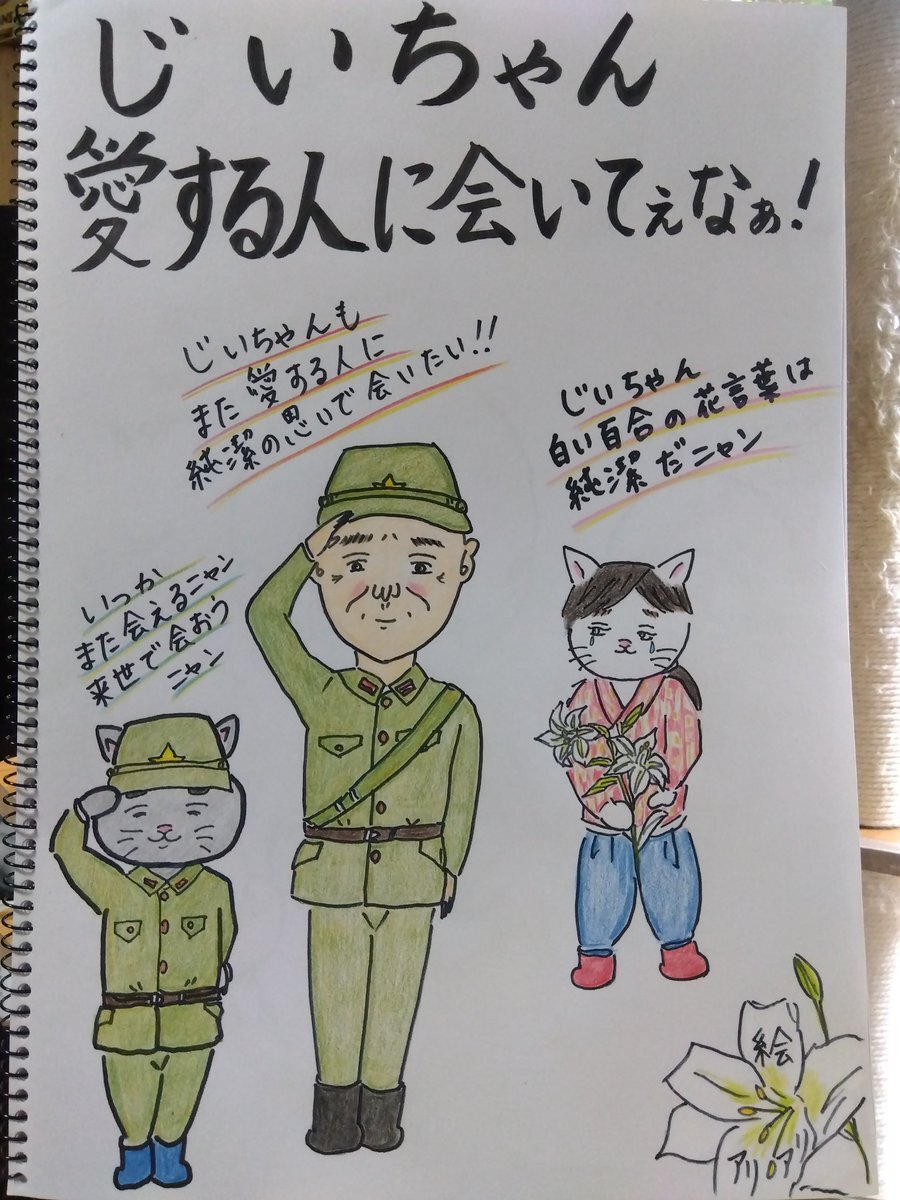 じいちゃん
愛する人に会いてぇなぁ!
じいちゃんも
また愛する人に
純潔の思いで会いたい!!
じいちゃん
白い百合の花言葉は
純潔だニャン
いつか
また会えるニャン
来世で会おう
ニャン
絵